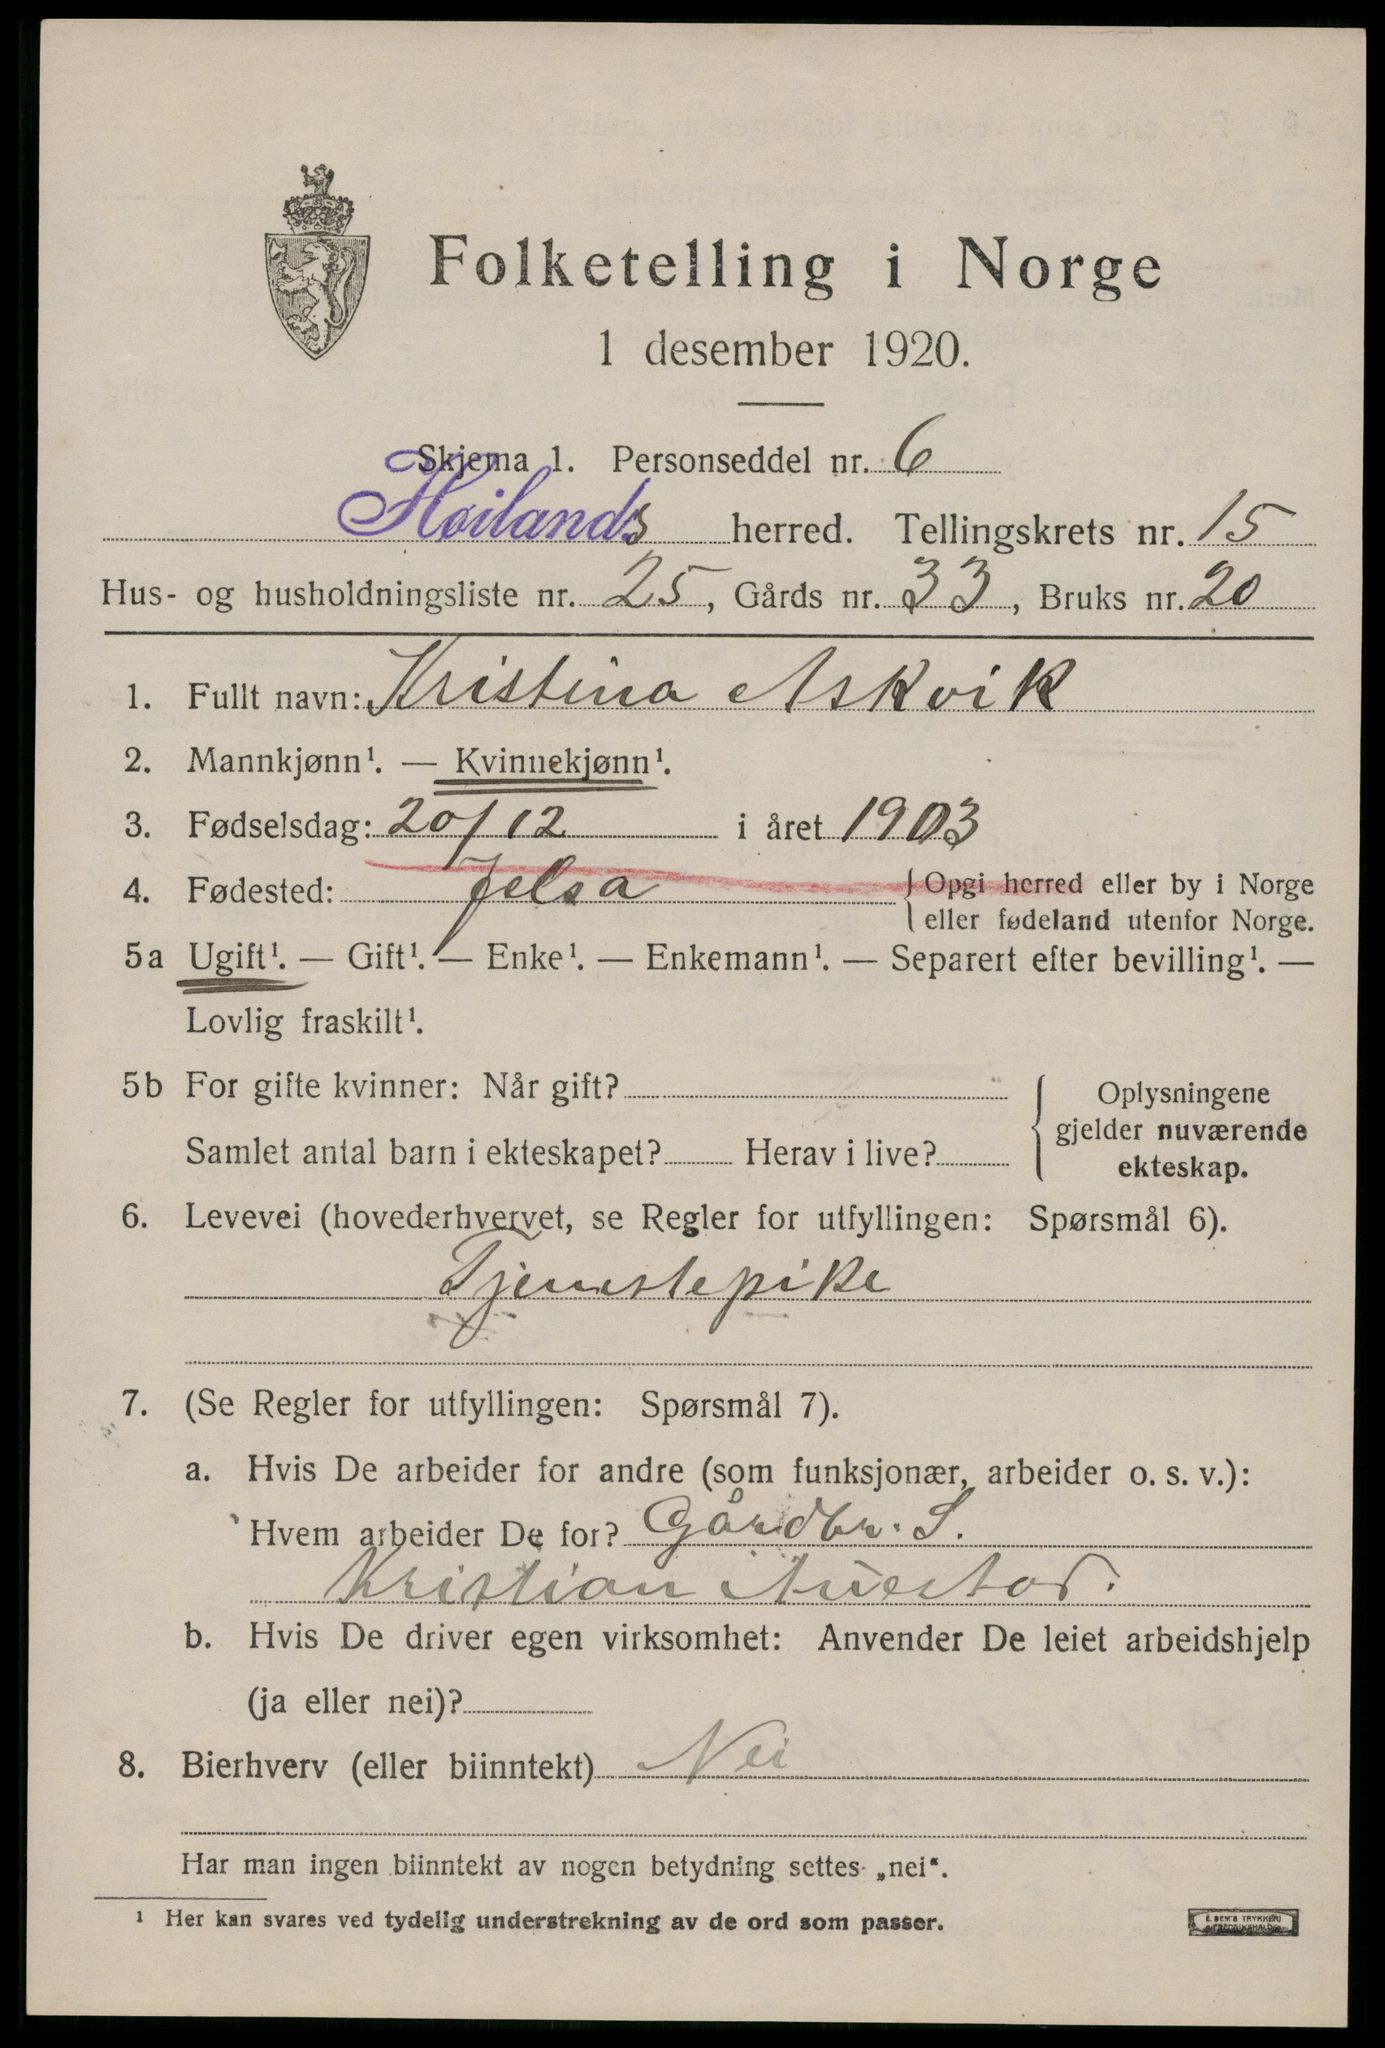 Folketelling i Norge
1 desember 1920.
Skjema 1. Personseddel nr. 6
Høilands herred. Tellingskrets nr. 15
Hus- og husholdningsliste nr. 25, Gårds nr. 33, Bruks nr. 20
1. Fullt navn: Kristina Askvik
2. Mannkjønn¹. — Kvinnekjønn¹.
3. Fødselsdag: 20/12 i året 1903
4. Fødested: Jelsa { Opgi herred eller by i Norge
eller fødeland utenfor Norge.
5a Ugift¹. — Gift¹. — Enke¹. — Enkemann¹. — Separert efter bevilling¹. —
Lovlig fraskilt¹.
5b For gifte kvinner: Når gift?
Samlet antal barn i ekteskapet? Herav i live?
{ Oplysningene
gjelder nuværende
ekteskap.
6. Levevei (hovederhvervet, se Regler for utfyllingen: Spørsmål 6).
Tjenestepike
7. (Se Regler for utfyllingen: Spørsmål 7).
a. Hvis De arbeider for andre (som funksjonær, arbeider o. s. v.):
Hvem arbeider De for? Gårdbr. S.
Kristian Auestad.
b. Hvis De driver egen virksomhet: Anvender De leiet arbeidshjelp
(ja eller nei)?
8. Bierhverv (eller biinntekt) Nei
Har man ingen biinntekt av nogen betydning settes „nei“.
¹ Her kan svares ved tydelig understrekning av de ord som passer.
E. SEM'S TRYKKERI
FREDRIKSHALD